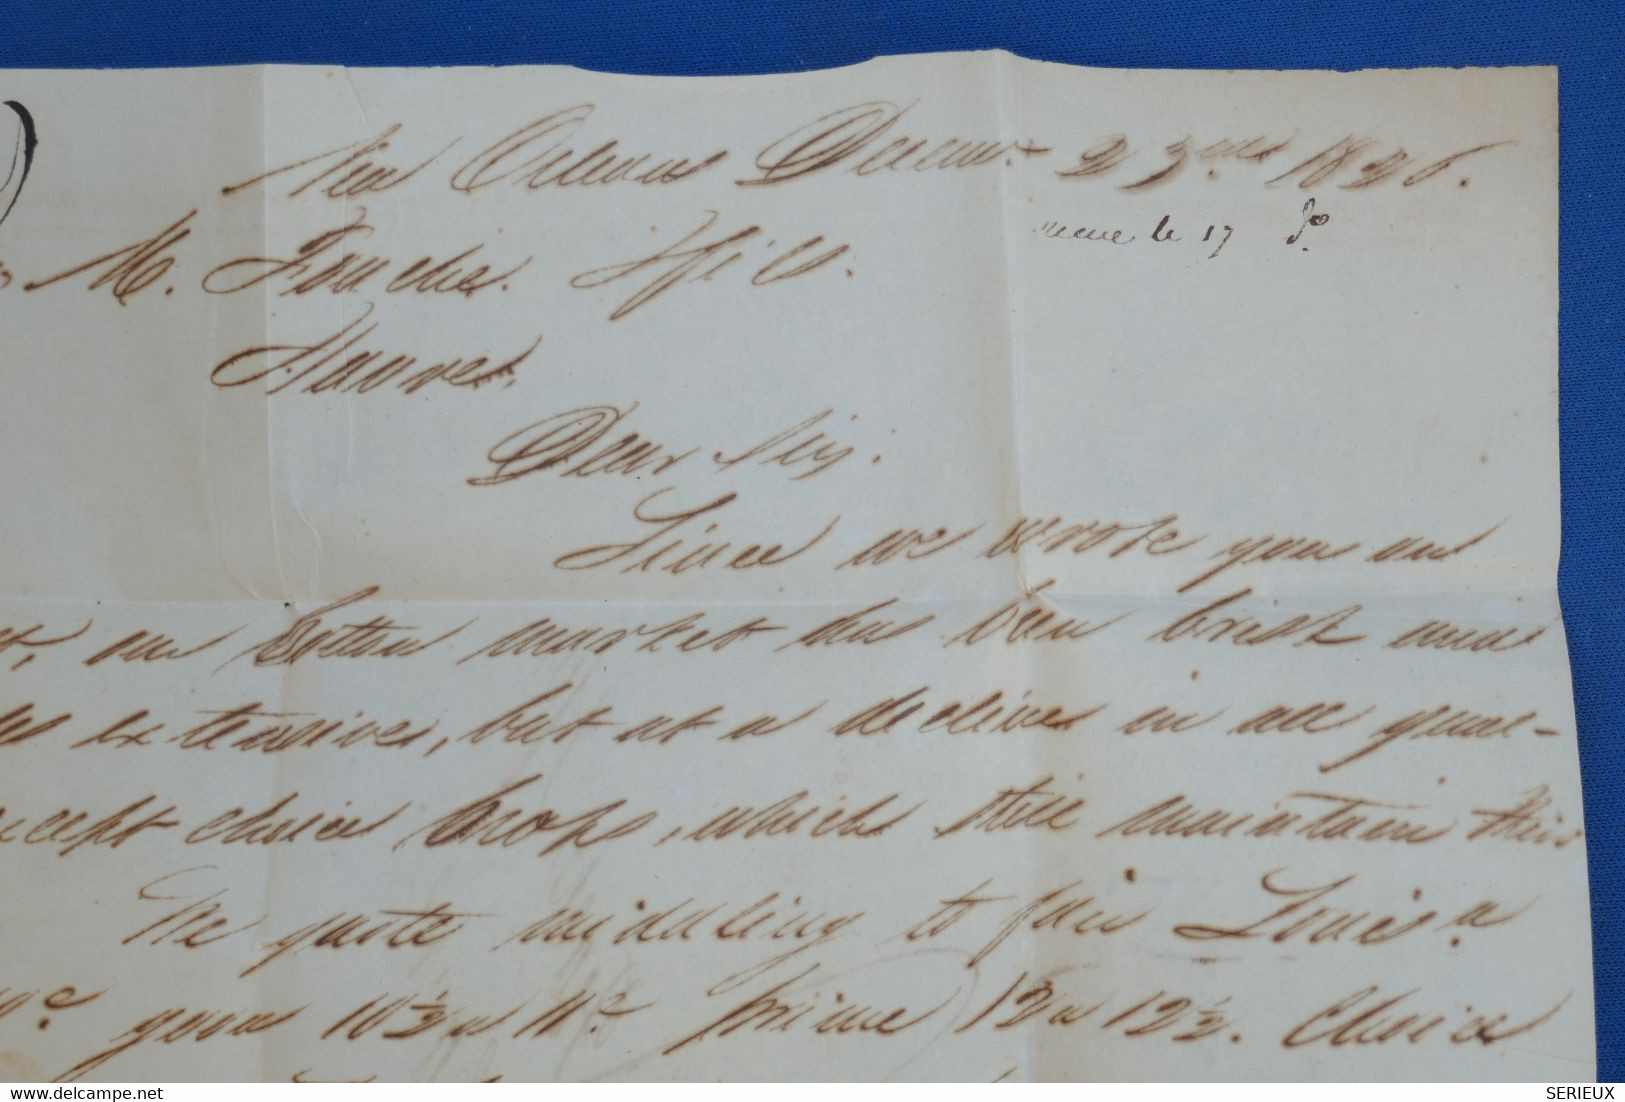 New Orleans December 23rd 1826.
recue le 17 do
M. Fouche fils & Co.
Havre.
Dear Sir,
Since we wrote you on
our Cotton market has been brisk and
extensive, but at a decline in all qual-
except choice Crops, which still maintain their
We quote middling to fair Louisa
10c good 10½ a 11c prime 12 a 12½. Choice
SERIEUX